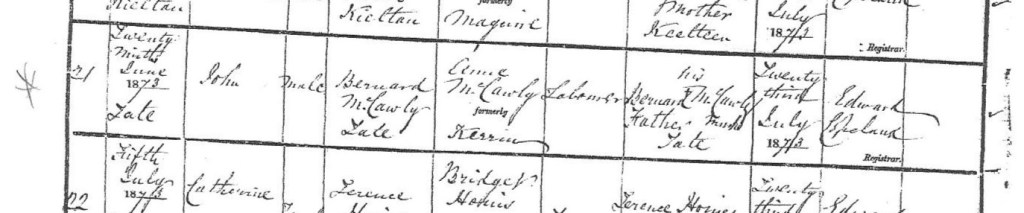 Kieltan
Kieltan
formerly
Maguire
Mother
Keelteen
July
1873
Registrar.
21
Twenty
Ninth
June
1873
Tate
John
Male
Bernard
McCawly
Tate
McCawly
formerly
Kerrin
Labourer
his
Bernard X McCawly
Father Mark
Tate
Twenty
third
July
1873
Edward
Copeland
Registrar.
22
Fifth
July
1873
Catherine
Terence
Bridget
Terence
Twenty
third
Edward